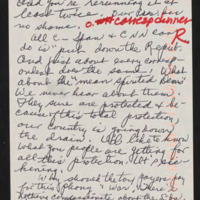 and you're rerunning it at
least twice. But Dems has
no shame.
All C-Span & CNN can
do is "pick" down the Repub.
And just about every corresp-
ondent does the same. What
about the "mean spirited Dems"
We never hear about them.
They sure are protected & be-
cause of this total protection,
our country is going down
the drain. I'd like to know
what you people are getting for
all this protection. It's sick-
ening.
Why should the tax payers pay
for this "phony" war. There is
nothing compassionate about the